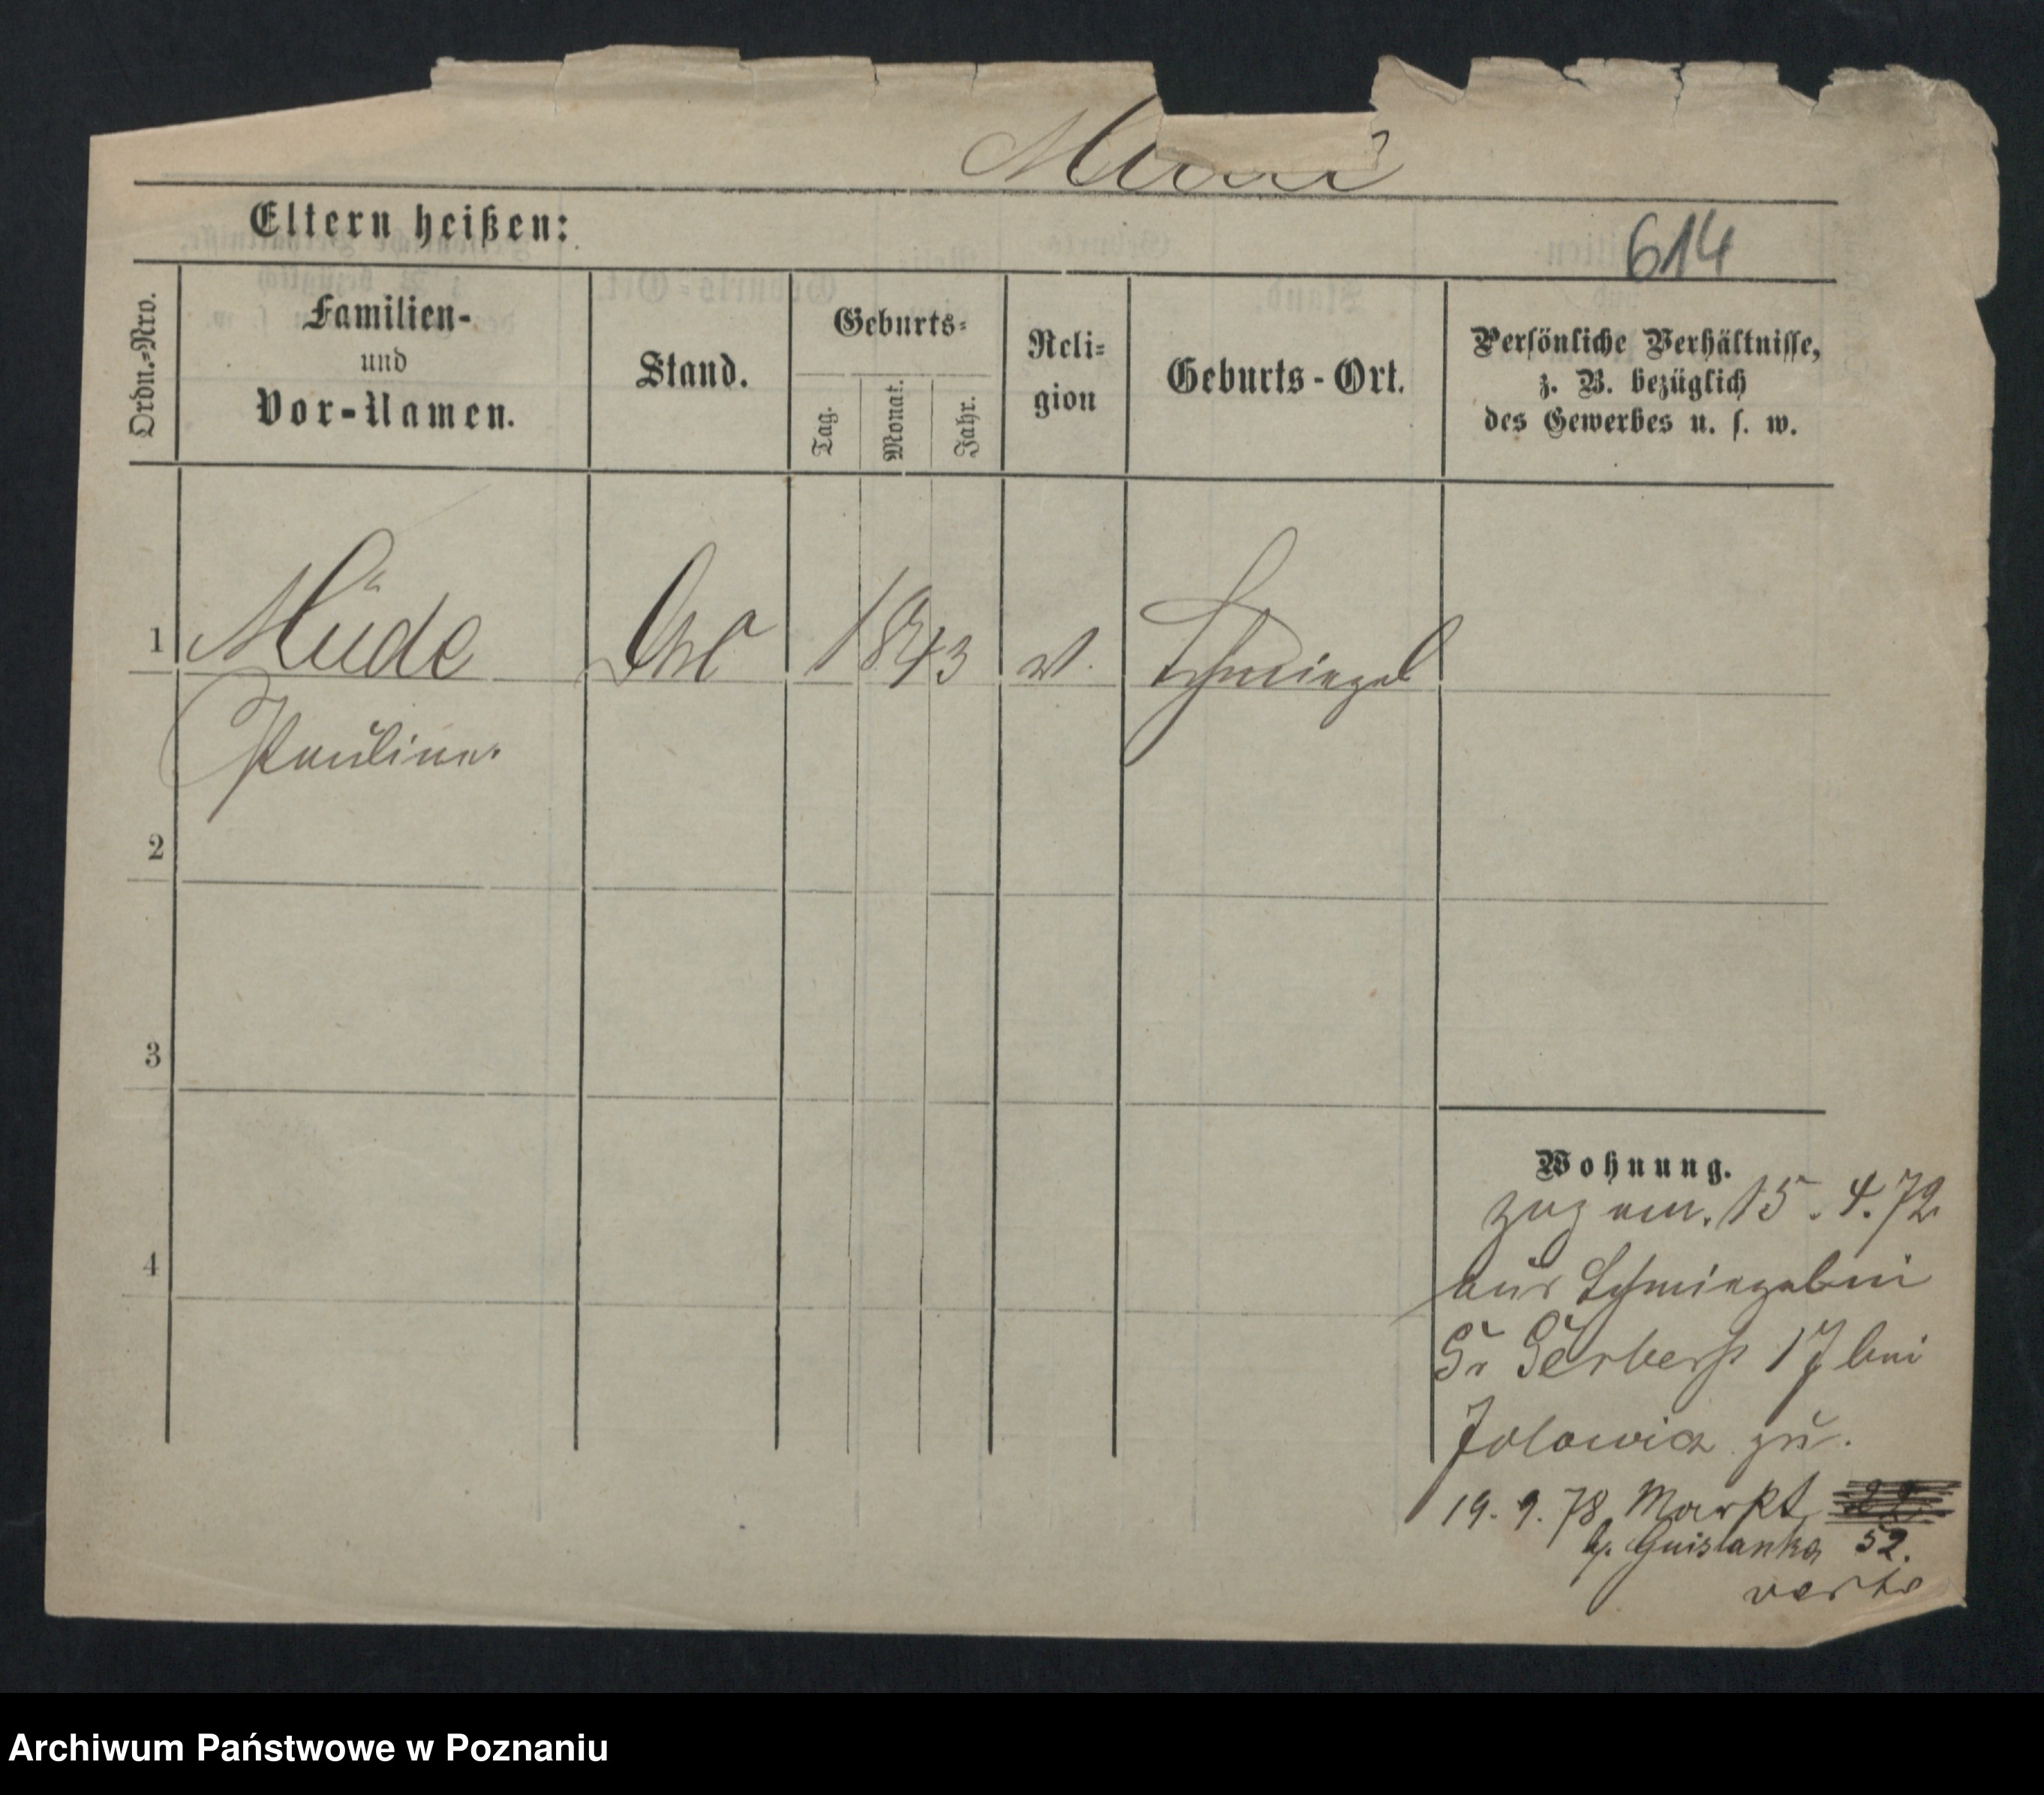 614
Eltern heißen:
Ordn.-Nro.
Familien-
und
Vor-Namen.
Stand.
Geburts-
Tag.
Monat.
Jahr.
Reli-
gion
Geburts-Ort.
Persönliche Verhältnisse,
z. B. bezüglich
des Gewerbes u. s. w.
1
Müde
1843
Schmiegel
Pauline
2
3
4
Wohnung.
zog am 15.4.72
aus Schmiegel bei
Gr Gerberst 17 bei
Jolowicz zu.
19.9.78 Markt
52.
verte
Archiwum Państwowe w Poznaniu